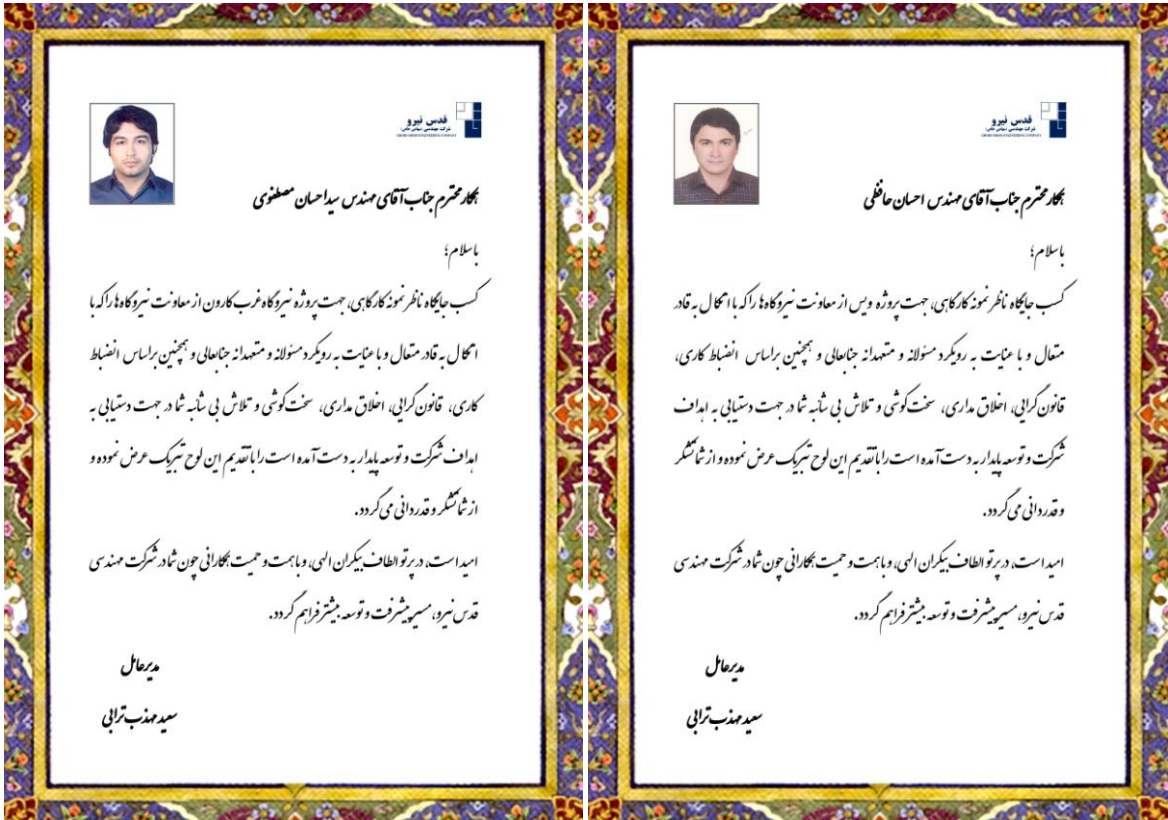 قدس نیرو
شرکت مهندسی (سهامی خاص)
GHODS NIROO ENGINEERING COMPANY
همکار محترم جناب آقای مهندس سیداحسان مصطفوی
باسلام؛
کسب جایگاه ناظر نمونه کارگاهی، جهت پروژه نیروگاه غرب کارون از معاونت نیروگاه‌ها را که با
اتکال به قادر متعال و با عنایت به رویکرد مسئولانه و متعهدانه جنابعالی و همچنین براساس انضباط
کاری، قانون‌گرایی، اخلاق مداری، سخت‌کوشی و تلاش بی شائبه شما در جهت دستیابی به
اهداف شرکت و توسعه پایدار به دست آمده است را با تقدیم این لوح تبریک عرض نموده و
از شما تشکر و قدردانی می‌گردد.
امید است، در پرتو الطاف بیکران الهی، و با همت و حمیت همکارانی چون شما در شرکت مهندسی
قدس نیرو، مسیر پیشرفت و توسعه بیشتر فراهم گردد.
مدیرعامل
سعید مهذب ترابی
قدس نیرو
شرکت مهندسی (سهامی خاص)
GHODS NIROO ENGINEERING COMPANY
همکار محترم جناب آقای مهندس احسان حافظی
باسلام؛
کسب جایگاه ناظر نمونه کارگاهی، جهت پروژه ویس از معاونت نیروگاه‌ها را که با اتکال به قادر
متعال و با عنایت به رویکرد مسئولانه و متعهدانه جنابعالی و همچنین براساس انضباط کاری،
قانون‌گرایی، اخلاق مداری، سخت‌کوشی و تلاش بی شائبه شما در جهت دستیابی به اهداف
شرکت و توسعه پایدار به دست آمده است را با تقدیم این لوح تبریک عرض نموده و از شما تشکر
و قدردانی می‌گردد.
امید است، در پرتو الطاف بیکران الهی، و با همت و حمیت همکارانی چون شما در شرکت مهندسی
قدس نیرو، مسیر پیشرفت و توسعه بیشتر فراهم گردد.
مدیرعامل
سعید مهذب ترابی